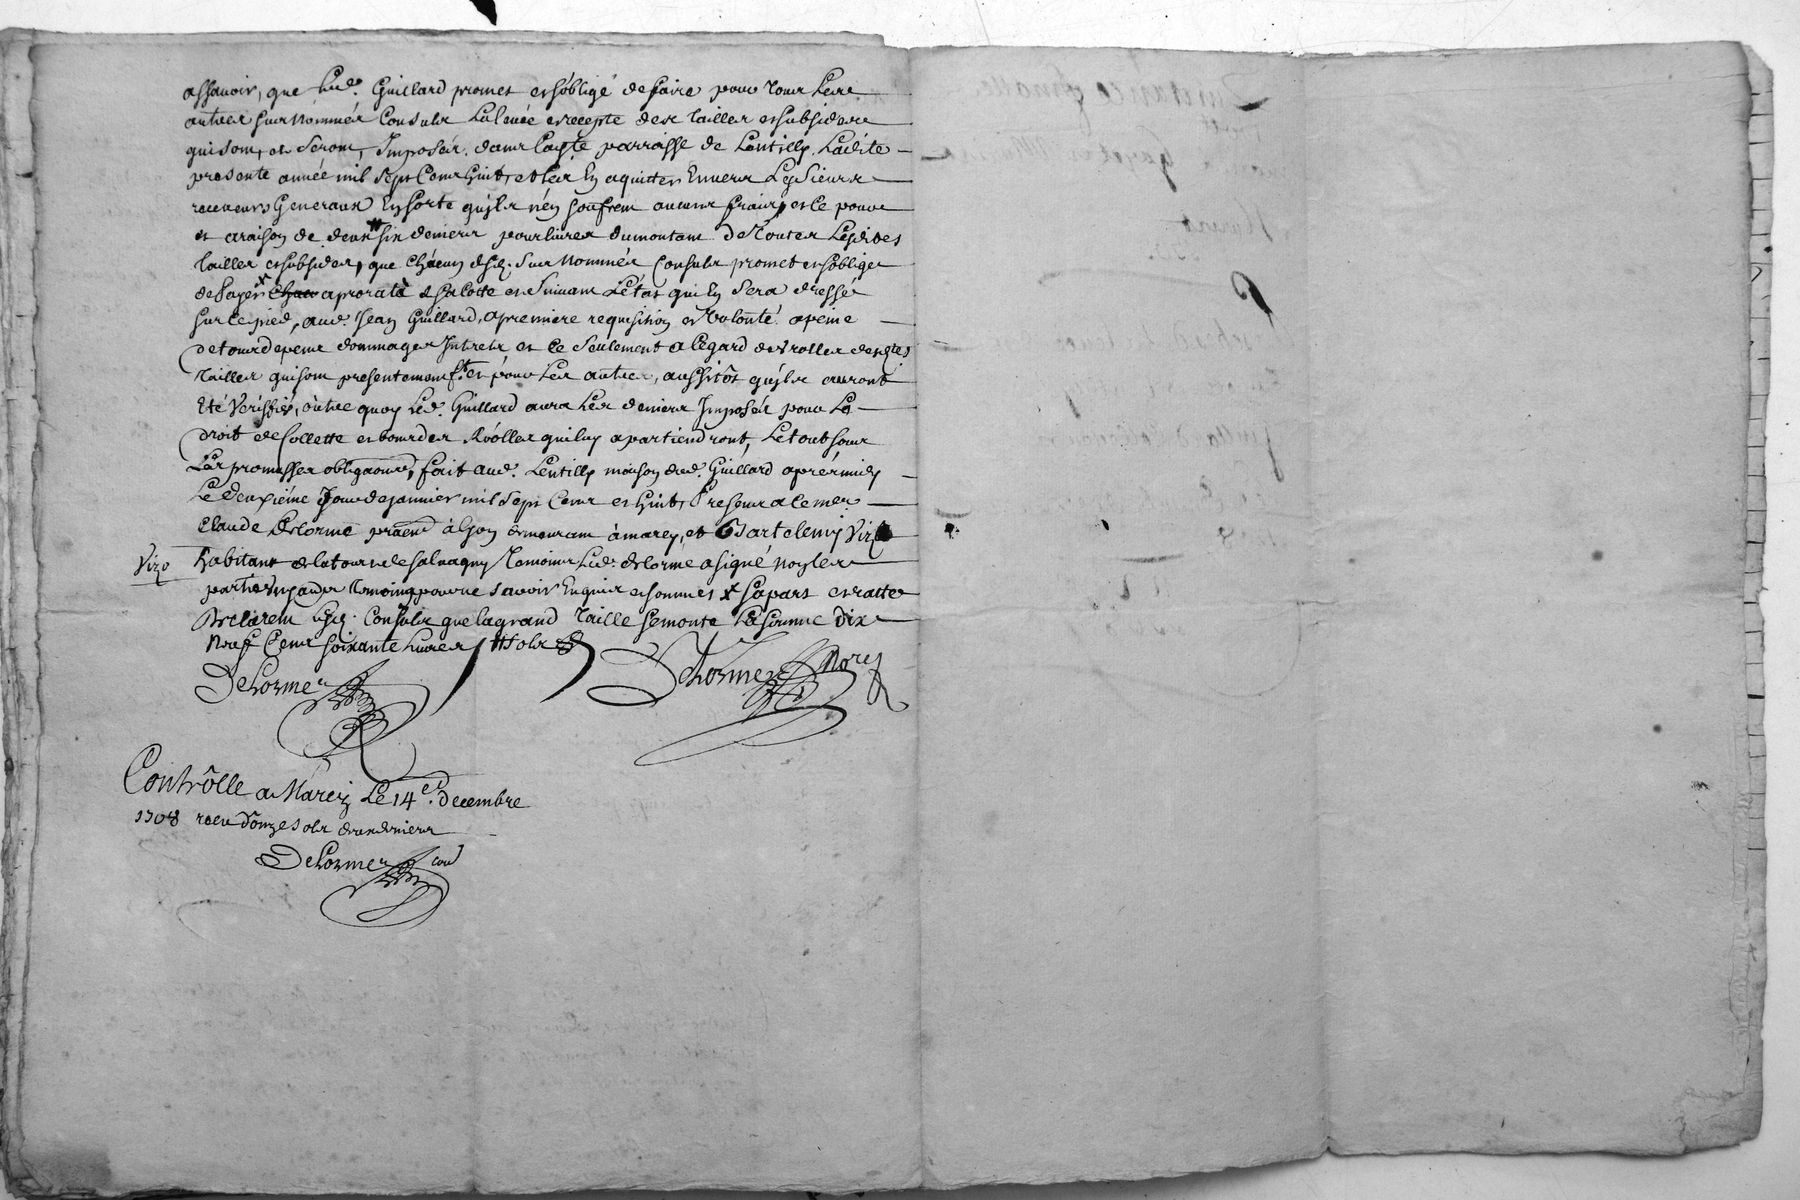 assavoir, que led. Guillard promet et s'obligé de faire pour tour les
autres surnommés Consuls la levée et recepte des tailles et subsides
qui sont, et seront, Imposés. dans lad. parroisse de Lentilly Ladite
presente année mil sept Cent huit, et les En aquitter Envers Les Sieurs
receveurs Generaux En sorte qu'ils n'en soufrent aucuns fraix, et ce pour
et a raison de deux six deniers pour livres du montant de toutes Lesdites
tailles et subsides, que chacun desd. Surnommés Consuls promet et s'oblige
de payer a prorata de sa cotte et suivant L'état qui En sera dressé
sur ce pied, aud. Jean Guillard, a premiere requisition et volonté a peine
de tour depens dommages Interets et ce seulement a l'egard des rolles desd.
tailles qui sont presentement et pour les autres, aussitôt qu'ils auront
Eté verifiés, outre quoy led. Guillard aura les deniers Imposés pour Le
droit de Collette et bourdes Roolles qui luy apartiendront, Le tout sous
Les promesses obligaons, fait aud. Lentilly maison dud. Guillard aprés midy
Le deuxiéme Jour de janvier mil sept Cent et huit, Presents a ce me
Claude Delorme pratn à Lyon demeurant à marcy, et Bartelemy Vizo
Vizo
habitant de la tour de Salvagny temoins Led. delorme a signé non les
parties ny autre temoing pour ne savoir Enquis et sommés x sa part et ratte
Declarent lesd. Consuls que la grand Taille se monte La somme dix
neuf Cent soixante livres sols
Delorme
Delorme
Nore
Contrôlle a Marcy Le 14e. decembre
1708 receu d'onze sols deux deniers
Delorme